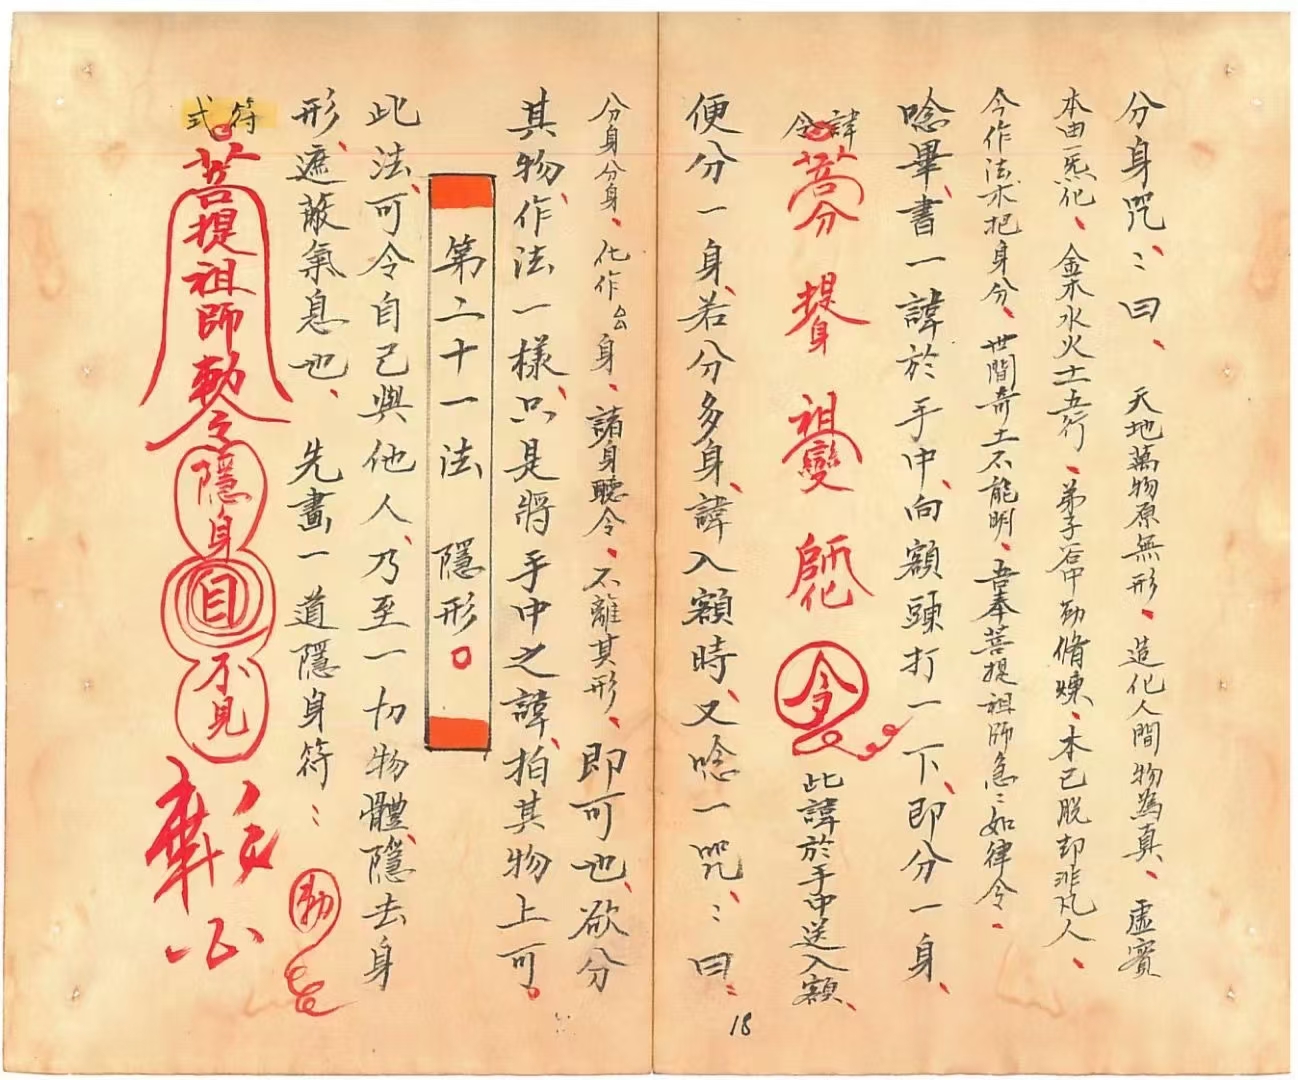 分身咒：曰、天地萬物原無形、造化人間物為真、虛實
本由一炁化、金木水火土五行、弟子石中勤脩煉、本已脫却非凡人、
今作法术把身分、世間奇士不能明、吾奉菩提祖師急：如律令、
唸畢、書一諱於手中、向額頭打一下、即分一身、
諱令
菩分 提身 祖變 師化 令
此諱於手中送入額、
便分一身、若分多身、諱入額時、又唸一咒：曰：
分身分身、化作厶身、諸身聽令、不離其形、即可也、欲分
其物、作法一樣、只是將手中之諱、拍其物上可。
第二十一法 隱形。
此法、可令自己與他人、乃至一切物體、隱去身
形、遮蔽氣息也、先畫一道隱身符：
符式
菩提祖師勅令隱身目不見
勅
18